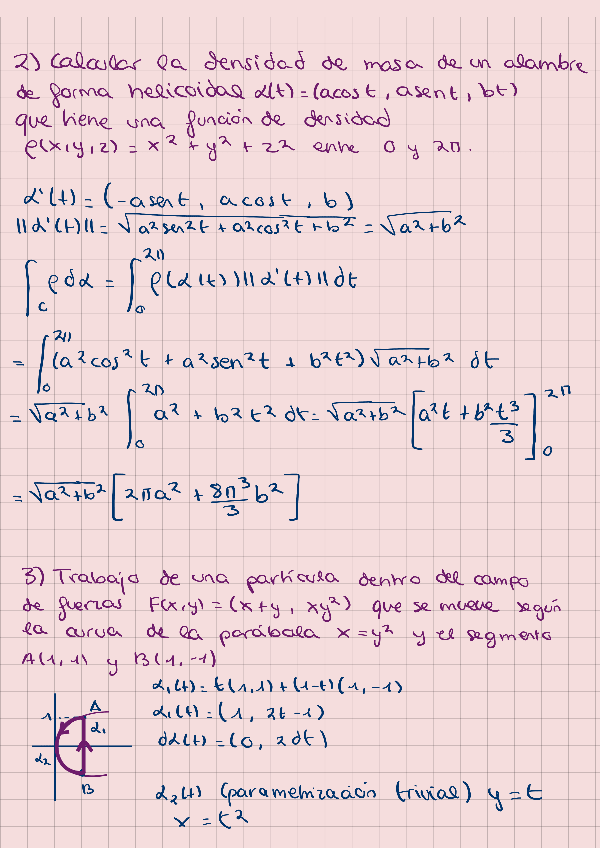 2) Calcular la densidad de masa de un alambre
de forma helicoidal α(t) = (acost, asent, bt)
que tiene una función de densidad
ρ(x,y,z) = x² + y² + z² entre 0 y 2π.
α'(t) = (-asent, acost, b)
||α'(t)|| = √(a²sen²t + a²cos²t + b²) = √(a²+b²)
∫_C ρdα = ∫_0^2π ρ(α(t))||α'(t)||dt
= ∫_0^2π (a²cos²t + a²sen²t + b²t²) √(a²+b²) dt
= √(a²+b²) ∫_0^2π a² + b²t² dt = √(a²+b²) [a²t + b²t³/3]_0^2π
= √(a²+b²) [2πa² + 8π³/3 b²]
3) Trabajo de una partícula dentro del campo
de fuerzas F(x,y) = (x+y, xy²) que se mueve según
la curva de la parábola x = y² y el segmento
A(1,1) y B(1,-1)
α₁(t) = t(1,1) + (1-t)(1,-1)
α₁(t) = (1, 2t-1)
dα(t) = (0, 2dt)
1 A
α₁
α₂
B
α₂(t) (parametrización trivial) y = t
x = t²